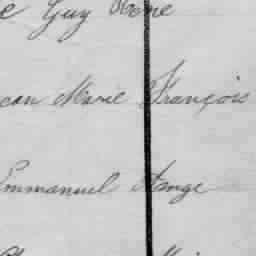 e Guy René
ean Marie François
Emmanuel Ange